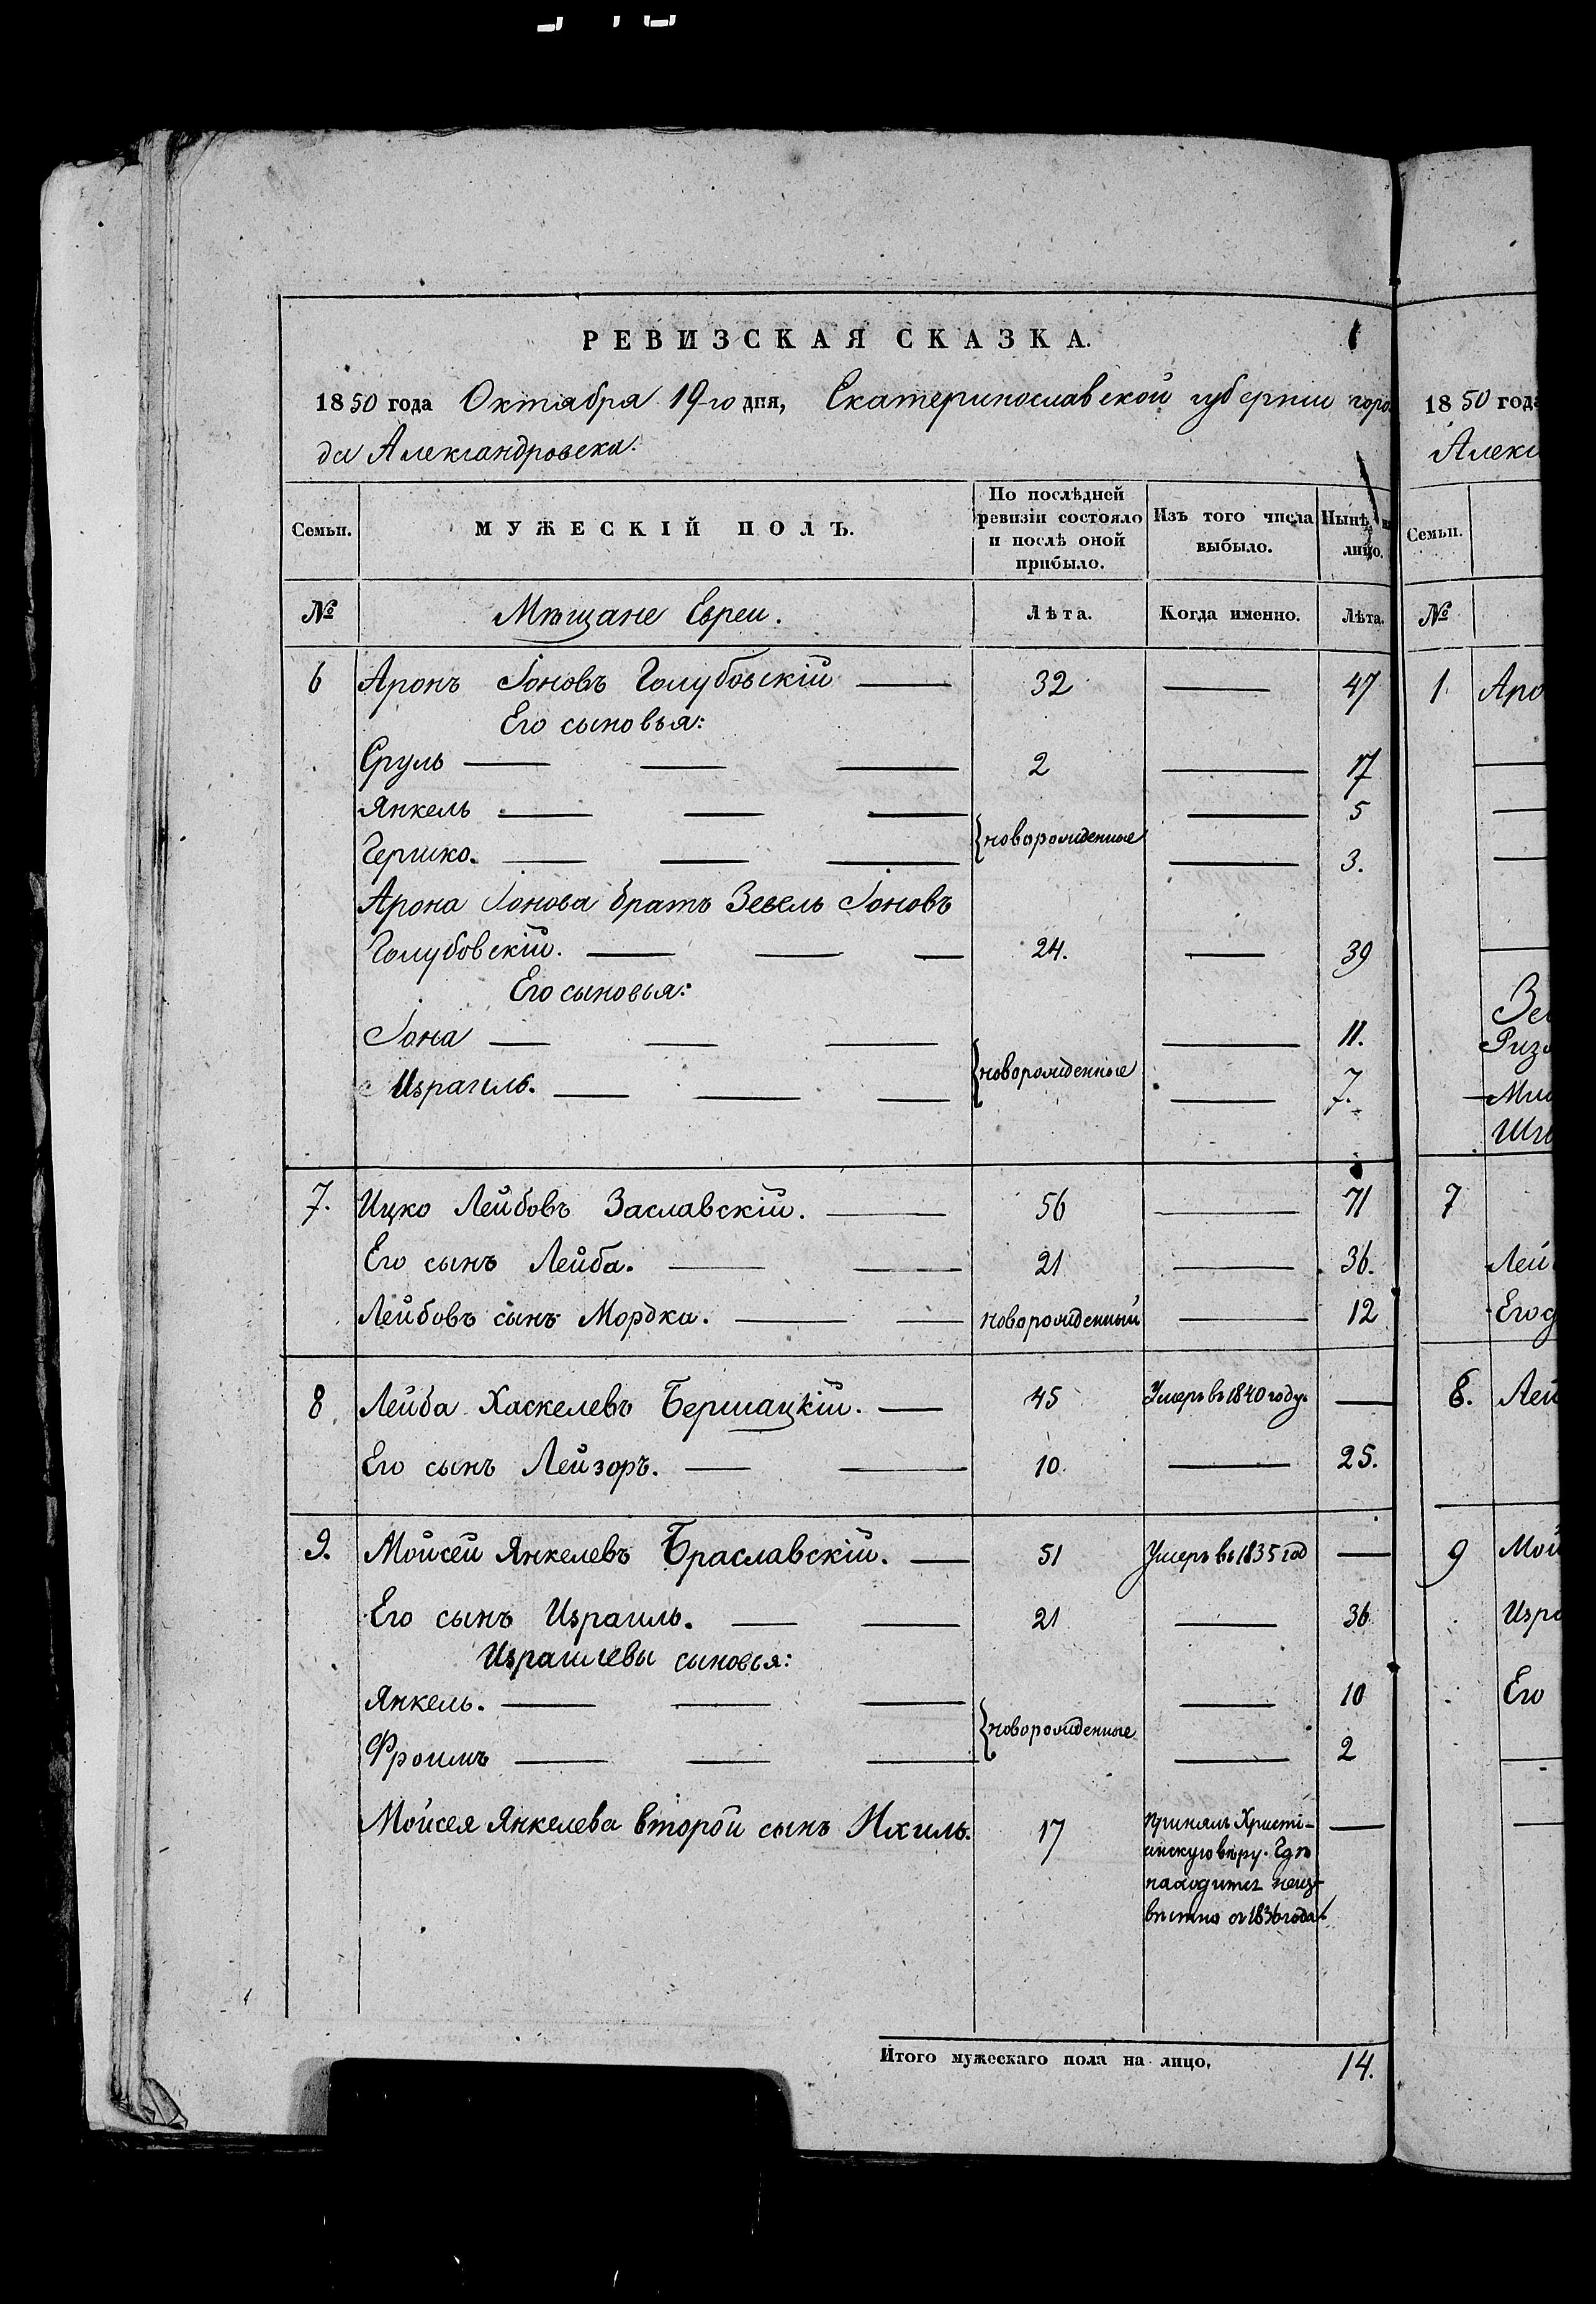 РЕВИЗСКАЯ СКАЗКА.
1850 года Октября 19-го дня, Екатеринославской губернии горо
да Александровска.
Семьи. МУЖЕСКІЙ ПОЛЪ. По послѣдней ревизіи состояло и послѣ оной прибыло. Изъ того числа выбыло. Нынѣ на лицо.
№ Мѣщане Евреи. Лѣта. Когда именно. Лѣта.
6 Аронъ Іоновъ Голубовскій — 32 — 47
Его сыновья:
Сруль — — — 2 — 17
Янкель — — — — 5
{новорожденные
Гершко. — — — — 3.
Арона Іонова братъ Зевель Іоновъ
Голубовскій. — — — 24. — 39
Его сыновья:
Іона — — — — 11.
{новорожденные
Израиль. — — — — 7.
7. Ицко Лейбовъ Заславскій. — 56 — 71
Его сынъ Лейба. — — 21 — 36.
Лейбовъ сынъ Мордка. — — новорожденный — 12
8 Лейба Хаскелевъ Бершацкій. — 45 Умеръ въ 1840 году. —
Его сынъ Лейзоръ. — — 10. — 25.
9. Мойсей Янкелевъ Браславскій. — 51 Умеръ въ 1835 год —
Его сынъ Израиль. — — 21 — 36
Израилевы сыновья:
Янкель. — — — — 10
{новорожденные
Фроимъ — — — — 2
Мойсея Янкелева второй сынъ Ихиль. 17 принялъ Христі- —
анскую вѣру. Гдѣ
находится неиз-
вѣстно съ 1836 года.
Итого мужескаго пола на лицо, 14.
1850 года
Алекс
Семьи.
№
1. Аро
Зев
Ризя
Шве
7
Лей
Его д
8. Лей
9 Мой
Изра
Его